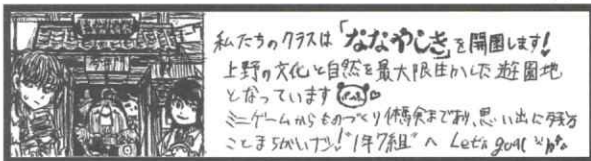 私たちのクラスは「ななやしき」を開園します!
上野の文化と自然を最大限生かした遊園地
となっています
ミニゲームからものづくり体験まであり、思い出に残る
ことまちがいナシ!"1年7組"へ Let's go!!